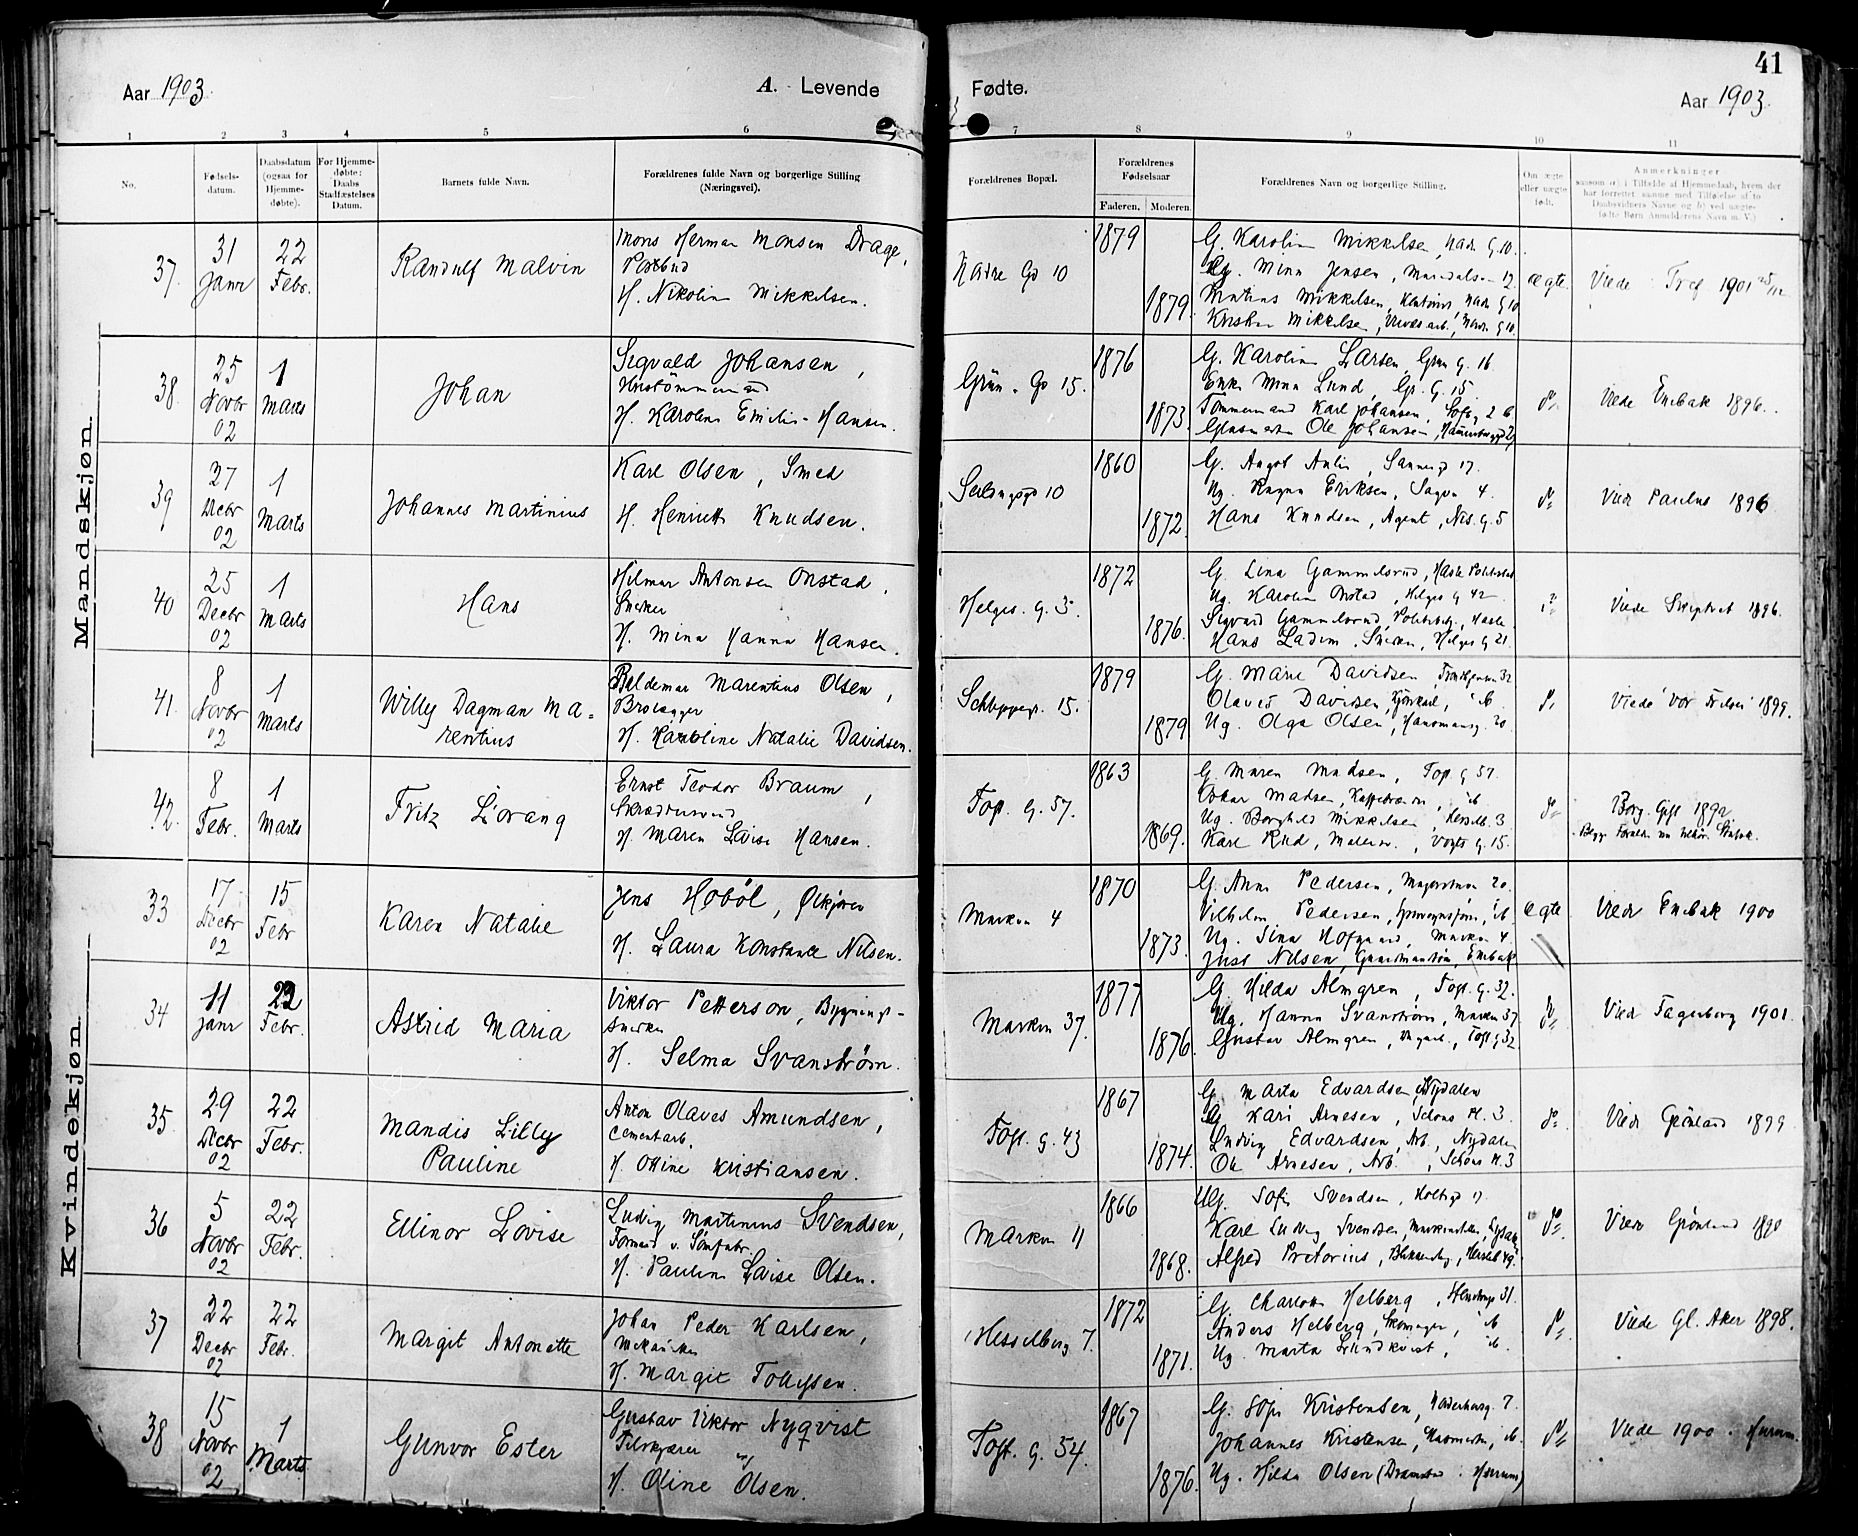 41
Aar 1903.
A. Levende
Fødte.
Aar 1903.
1 2 3 4 5 6 7 8 9 10 11
No.
Fødsels-datum.
Daabsdatum (ogsaa for Hjemme-døbte).
For Hjemme-døbte: Daabs Stadfæstelses Datum.
Barnets fulde Navn.
Forældrenes fulde Navn og borgerlige Stilling (Næringsvei).
Forældrenes Bopæl.
Forældrenes Fødselsaar
Faderen. Moderen.
Forældrenes Navn og borgerlige Stilling.
Om ægte eller uægte født.
Anmerkninger
Mandskjøn.
37. 31 Janr 22 Febr. Randulf Malvin
Mons Herman Monsen Drage, Postbud
H. Nikoline Mikkelsen.
Nadre Gd 10 1879 1879.
G. Karolin Mikkelsen, Nadr. G. 10.
Minn Jensen,
Mikkelsen,
Mikkelsen,
ægte Viede Tref 1901
38. 25 Novbr 02 1 Marts Johan
Segvald Johansen,
H. Karoline Emilie Hansen.
Grün. Gd 15. 1876 1873.
G. Karolin Larsen, Grün G. 16
Enke Minn Lund, Gr. G. 15.
Tømmermand Karl Johansen, Sofg. 26
Ole Johansen,
do Viede Enebak 1896.
39 27 Decbr 02 1 Marts Johannes Martinius
Karl Olsen, Smed
H. Henriette Knudsen.
Seildugsgd 10 1860 1872.
G. Angot Anlin, Sannergd 17.
Ug. Ragna Eriksen, Sagvn 4.
Hans Knudsen, Agent, Nis. G. 5
do Vied Paulus 1896
40 25 Decbr 02 1 Marts Hans
Hilmar Antonsen Onstad,
Snekker
H. Mina Hanna Hansen.
Helges. G. 3. 1872 1876.
G. Lina Gammelsrud,
Ug. Karolin Onstad, Helges G 42
Sigvard Gammelsrud,
Hans Ladim, Snekker, Helges G 21.
do Viede 1896.
41. 8 Novbr 02 1 Marts Willy Dagman Ma-
rentius
Baldemar Marentius Olsen,
Brolægger
H. Karoline Natalie Davidsen.
Schleppegr. 15. 1879 1879
G. Marie Davidsen,
Olavus Davidsen, ib
Ug. Olga Olsen, Hansmansg. 20
do Viede Vor Frelser 1899.
42. 8 Febr. 1 Marts Fritz Liorang
Ernst Teodor Braum,
Skræddersvend
H. Maren Lovise Hansen.
Toft. G. 57. 1863 1869.
G. Maren Madsen, Toft G 57.
Oskar Madsen, ib
Ug. Borghild Mikkelsen, Hesselb. 3
Karl Rud, Malersv., Vogts G. 15.
do Borg. Gift 1892.
Kvindekjøn.
33 17 Decbr 02 15 Febr Karen Natalie
Jens Hobøl, Ølkjører
H. Laura Konstanse Nilsen.
Markvn 4 1870 1873.
G. Anna Pedersen, 20.
Vilhelm Pedersen, ib
Ug. Sina Hofgaard, Markvn 4.
Nilsen, Enebak
ægte Viedr Enebak 1900
34 11 Janr 22 Febr. Astrid Maria
Viktor Petterson, Bygnings-
snekker
H. Selma Svanstrøm.
Markvn 37. 1877 1876.
G. Hilda Almgren, Toft. G. 32.
Ug. Hanna Svanstrøm, Markvn 37
Gustav Almgren, Toft G 32.
do Vied Fagerborg 1901.
35. 29 Decbr 02 22 Febr. Mandis Lilly
Pauline
Anton Olaves Amundsen,
Cementarb.
H. Otine Kristiansen.
Toft. G. 43 1867 1874.
G. Marta Edvardsen, Nydalen
Kari Arnesen, Schous Pl. 3.
Ludvig Edvardsen, Arb., Nydalen
Ole Arnesen, Arb., Schous Pl. 3
do Viedr Grønland 1899
36 5 Novbr 02 22 Febr. Ellinor Lovise
Ludvig Martinius Svendsen,
Formand v. Sømfabr.
H. Pauline Lovise Olsen.
Markvn 11 1866 1868.
Ug. Sofie Svendsen, Holtegd 17
Karl Ludvig Svendsen,
Alfred Pretorius, Blikkenslag., Hesselb 49.
do Viedr Grønland 1890
37 22 Decbr 02 22 Febr. Margit Antonette
Johan Peder Karlsen,
H. Margit Tollefsen.
Hesselberg 7. 1872 1871.
G. Charlotte Helberg, 31.
Anders Helberg, Skomager, ib
Ug. Marta Lundkvist, ib.
do Viede Gl. Aker 1898.
38 15 Novbr 02 1 Marts Gunvor Ester
Gustav Viktor Nyqvist
H. Oline Olsen.
Toft. G. 54. 1867 1876.
G. Sofie Kristensen, 7.
Johannes Kristensen, ib.
Ug. Hilda Olsen (Dramstad i Hurum)
do Viede 1900. Hurum.